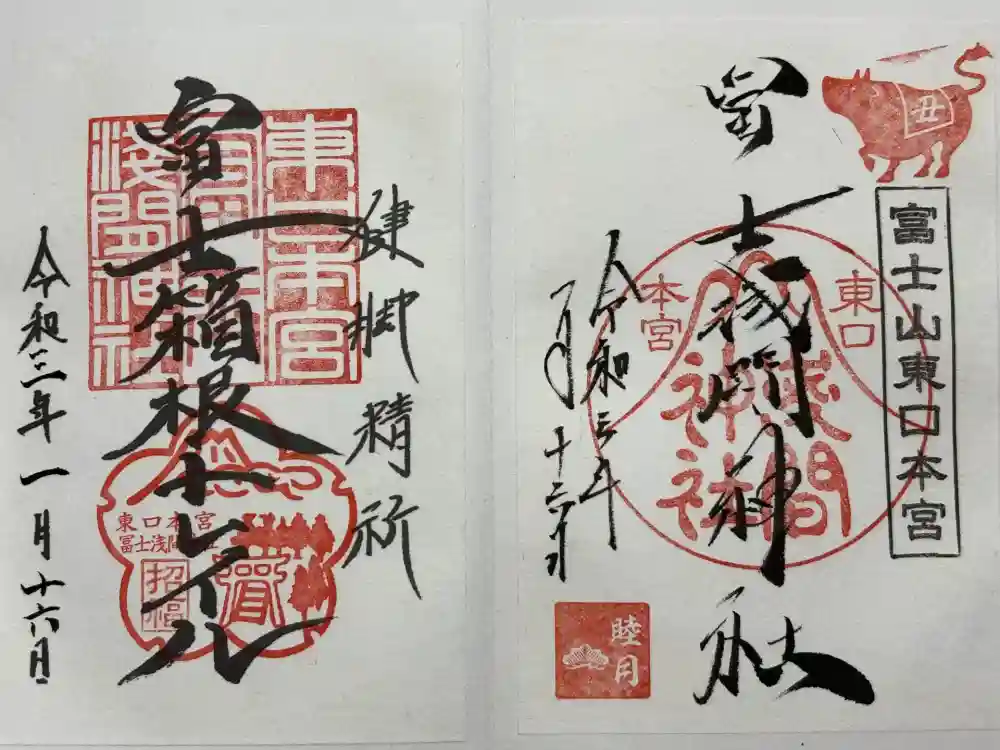 丑
富士山東口本宮
東口
本宮
浅間
神社
冨士浅間神社
令和三年
一月
十六日
睦月
健脚精祈
東口本宮
冨士
淺間神社
冨士箱根トレイル
東口本宮
招福
令和三年一月十六日